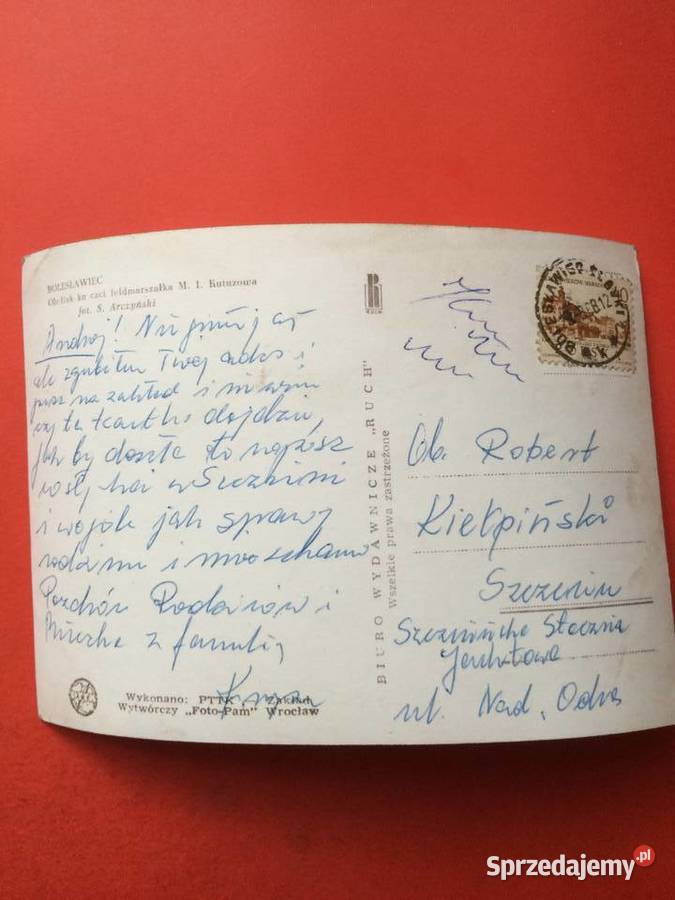 BOLESŁAWIEC
Obelisk ku czci feldmarszałka M. I. Kutuzowa
fot. S. Arczyński
Andrzej! Nie gniewaj się
ale zgubiłem Twój adres i
piszę na zakład i nie wiem
czy ta kartka dojdzie,
jak by doszła to napisz
co słychać w Szczecinie
i w ogóle jak sprawy
rodzinne i
Pozdrów Rodziców i
z familią
Wykonano: PTTK, Zakład
Wytwórczy „Foto-Pam" Wrocław
BIURO WYDAWNICZE „RUCH"
Wszelkie prawa zastrzeżone
RUCH
BOLESŁAWIEC
Ob. Robert
Kiełpiński
Szczecin
Szczecińska Stocznia
Jachtowa
ul. Nad. Odrą
Sprzedajemy.pl